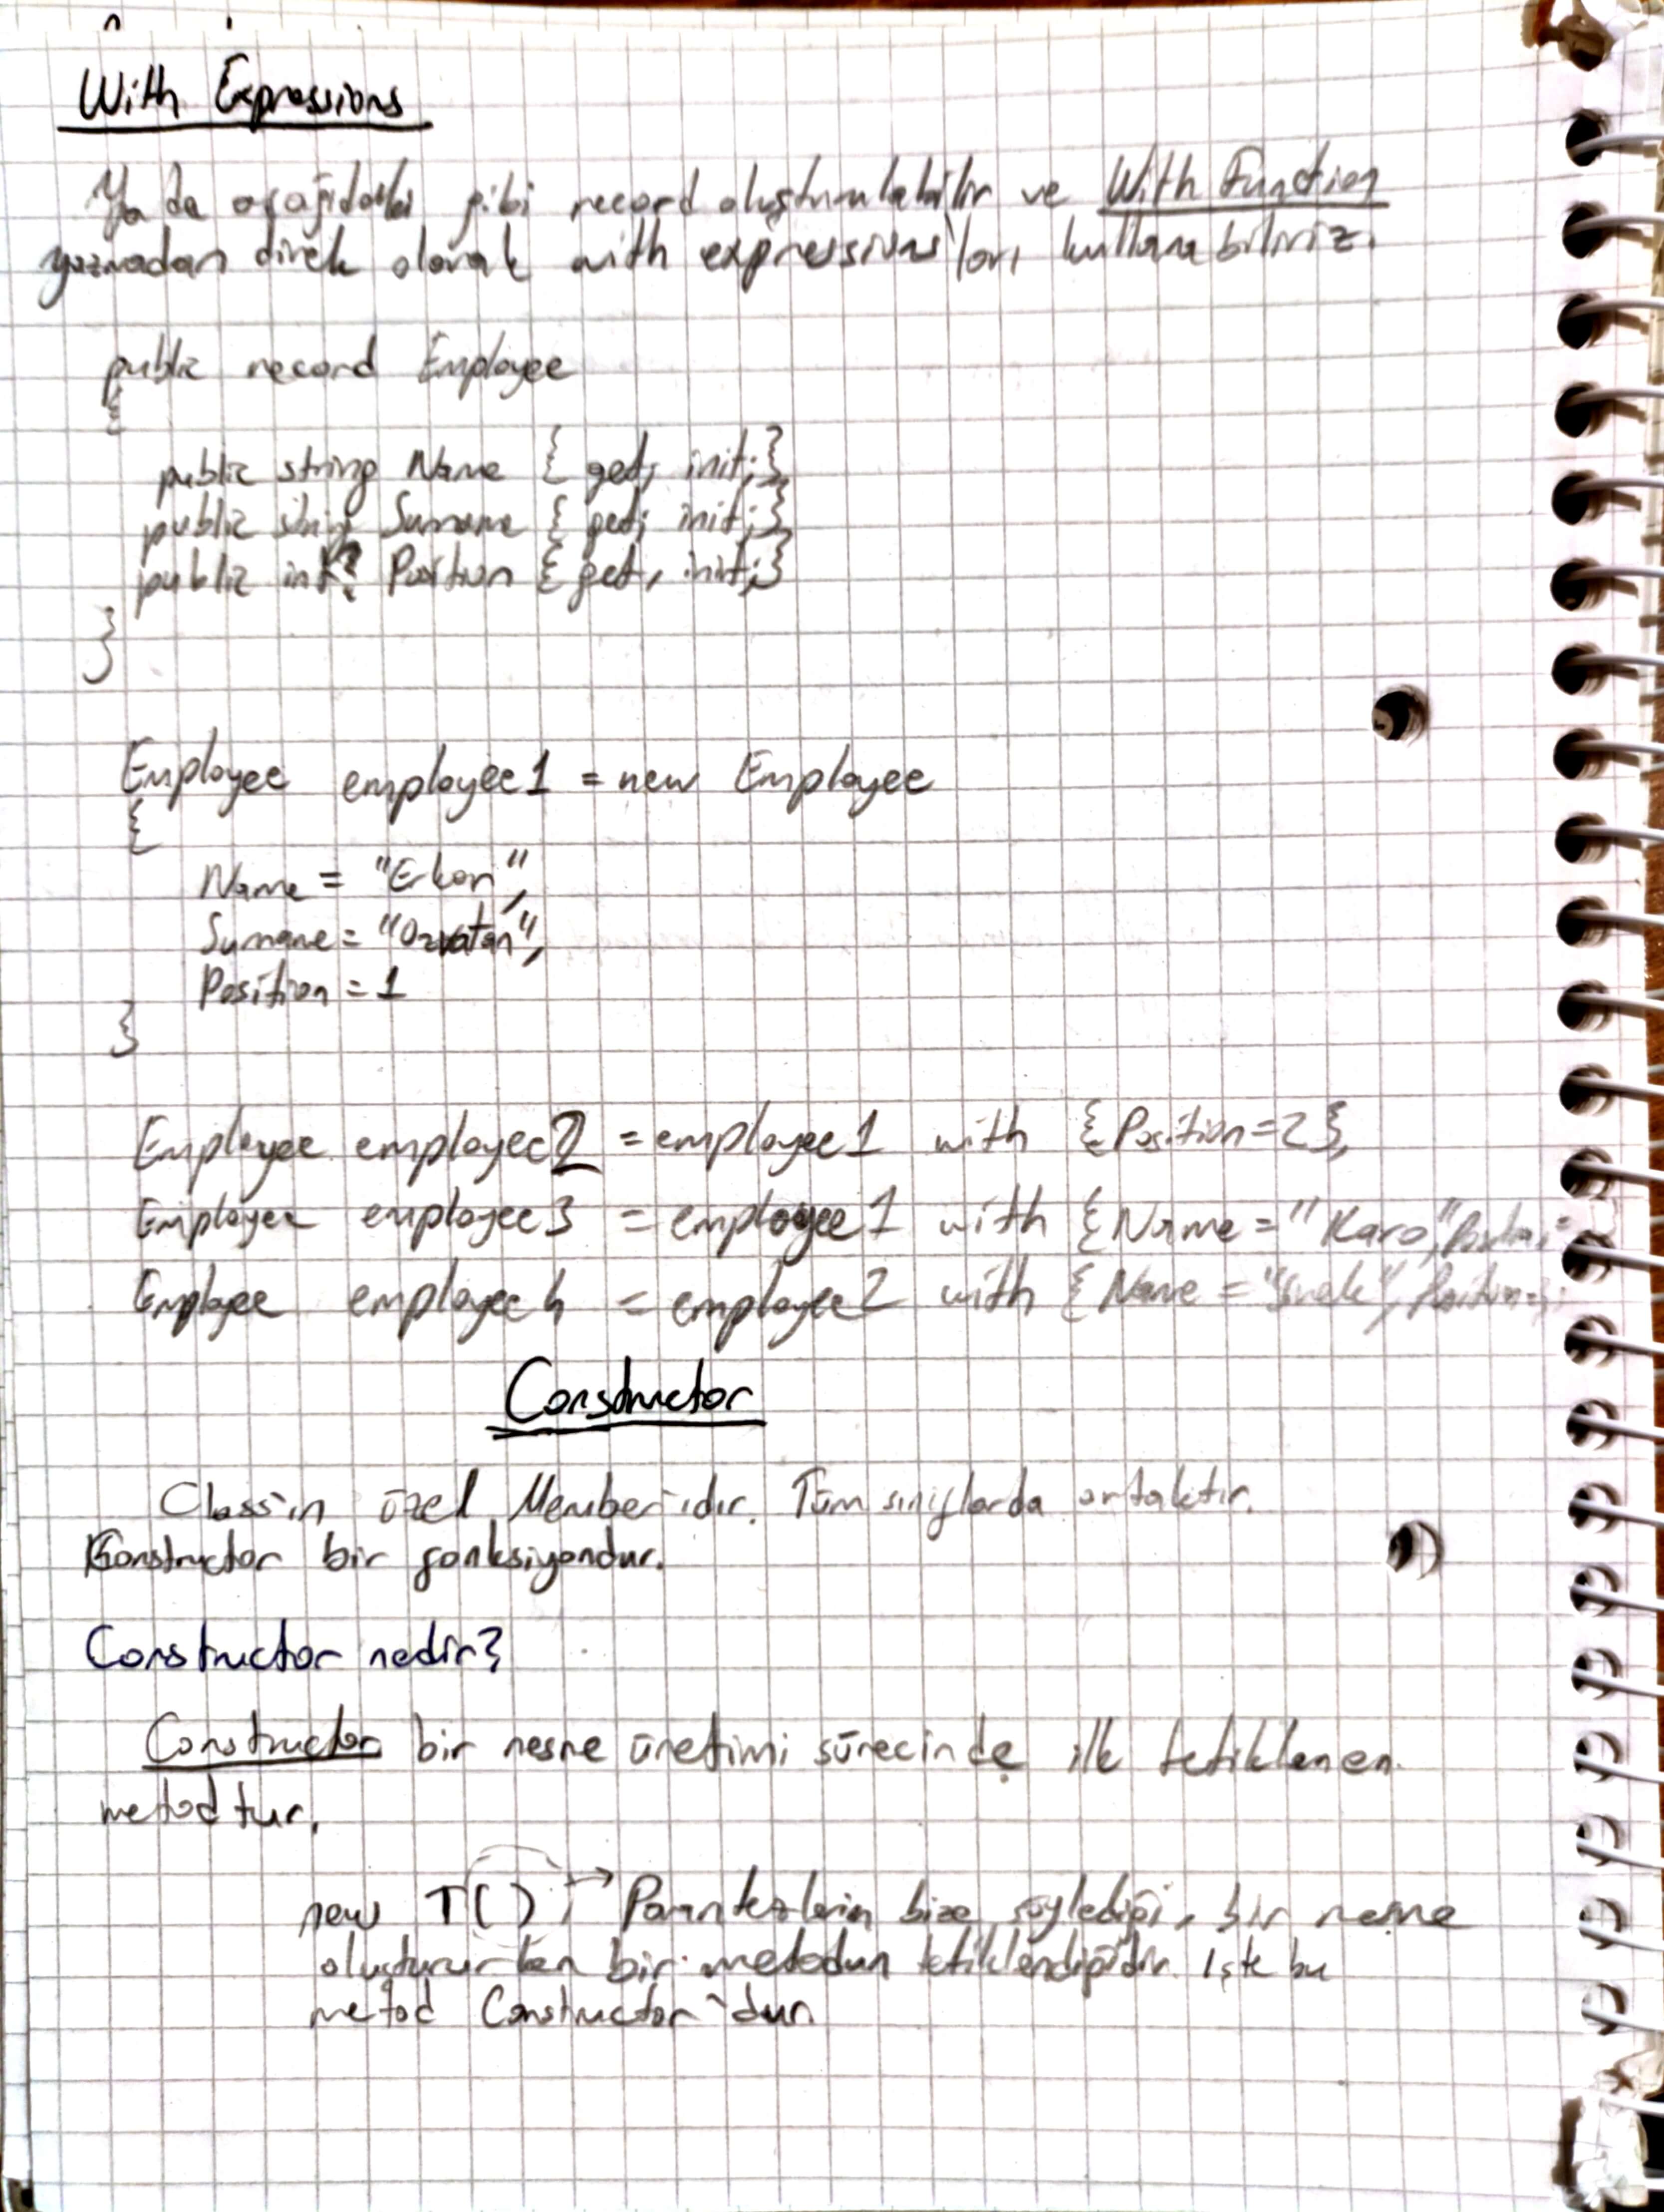 With Expressions
Ya da aşağıdaki gibi record oluşturulabilir ve With Function
yazmadan direk olarak with expressions'ları kullanabiliriz.
public record Employee
{
public string Name { get; init;}
public string Surname { get; init;}
public int? Position { get; init;}
}
Employee employee1 = new Employee
{
Name = "Erkan",
Surname = "Ozvatan",
Position = 1
}
Employee employee2 = employee1 with {Position=2};
Employee employee3 = employee1 with {Name = "Karo",
Employee employee4 = employee2 with { Name = Position=
Constructor
Class'ın özel Member'ıdır. Tüm sınıflarda ortaktır.
Constructor bir fonksiyondur.
Constructor nedir?
Constructor bir nesne üretimi sürecinde ilk tetiklenen
metodtur.
new T(); → Parantezlerin bize söylediği, bir nesne
oluştururken bir metodun tetiklendiğidir. İşte bu
metod Constructor'dur.